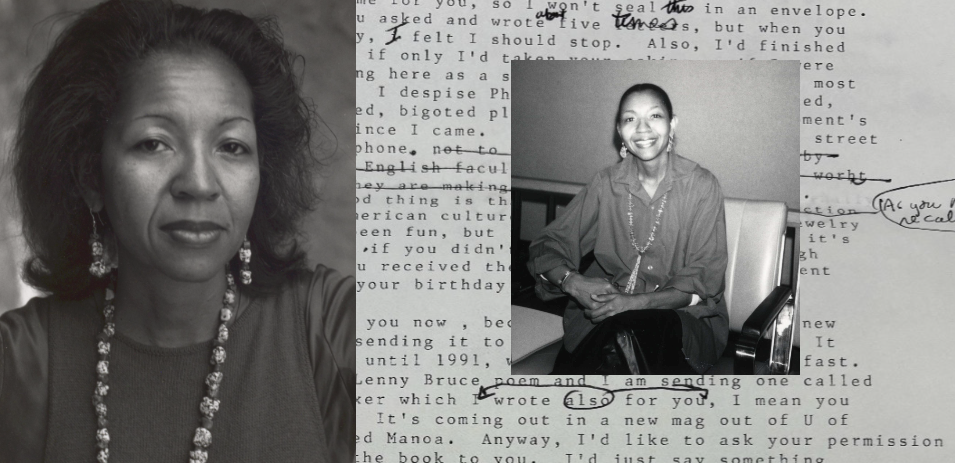 me for you, so I won't seal this in an envelope.
u asked and wrote about five times, but when you
y, I felt I should stop. Also, I'd finished
if only I'd ere
ng here as a s most
I despise Ph ed,
ed, bigoted pl ment's
ince I came. street
phone. not to by
English facul worht
hey are making
od thing is th ction
(As you
recal
merican cultur welry
een fun, but it's
if you didn' gh
u received the ent
your birthday
you now , bec new
sending it to It
until 1991, w fast.
Lenny Bruce poem and I am sending one called
ker which I wrote also for you, I mean you
It's coming out in a new mag out of U of
ed Manoa. Anyway, I'd like to ask your permission
the book to you. I'd just say something